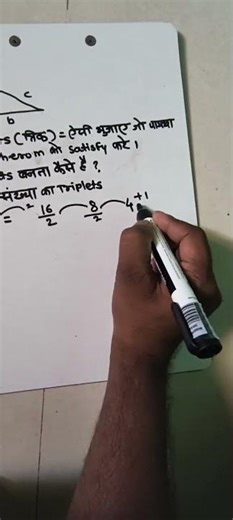 c
b
ts (त्रिक) = ऐसी भुजाएं जो
therom को satisfy करे।
ts बनता कैसे है ?
संख्या का Triplets
2 = 16/2 8/2 4 +1